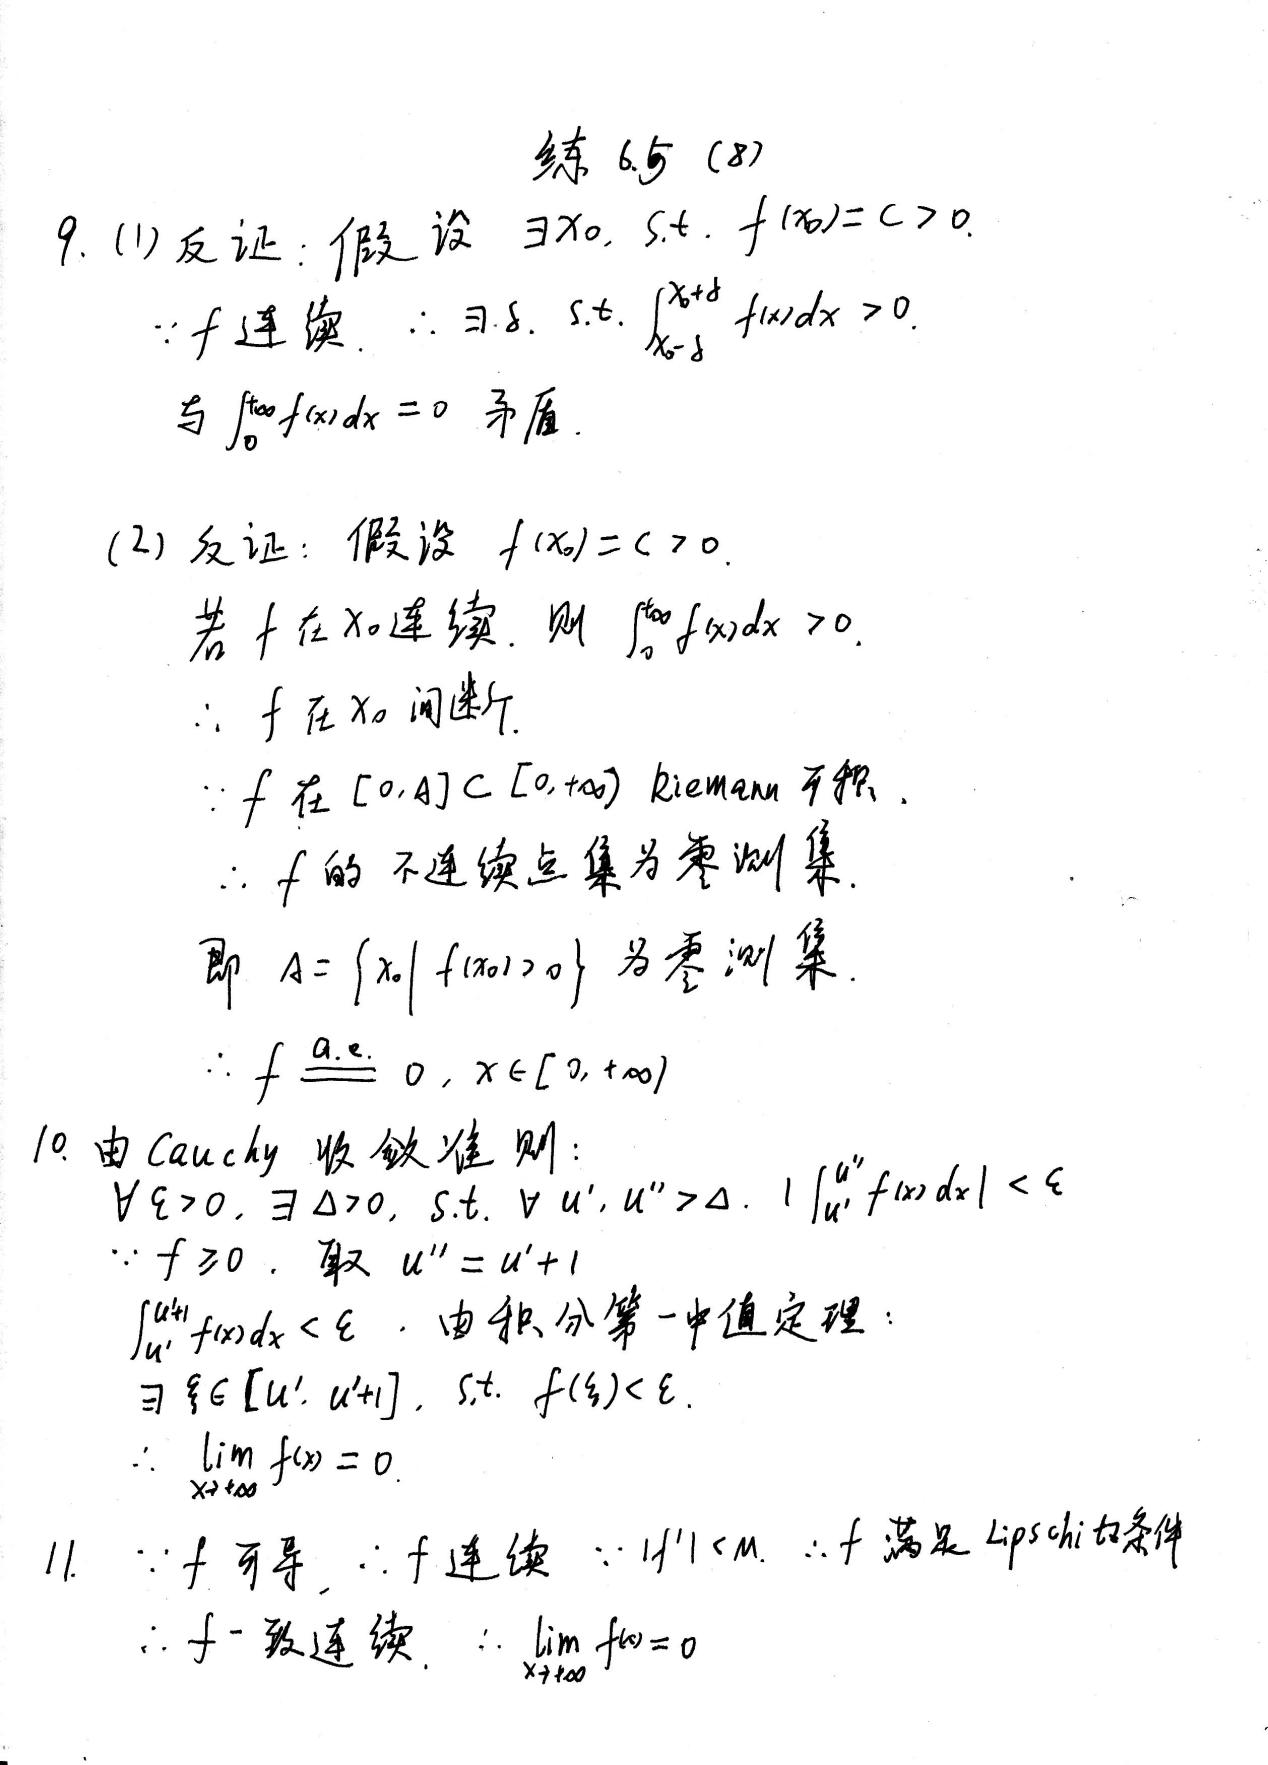 练 6.5 (8)
9. (1) 反证: 假设 ∃x₀, s.t. f(x₀)=c>0.
∵ f 连续. ∴ ∃ δ. s.t. ∫_{x₀-δ}^{x₀+δ} f(x)dx >0.
与 ∫_0^{+∞} f(x)dx =0 矛盾.
(2) 反证: 假设 f(x₀)=c>0.
若 f 在 x₀ 连续. 则 ∫_0^{+∞} f(x)dx >0.
∴ f 在 x₀ 间断.
∵ f 在 [0,A]⊂[0,+∞) Riemann 可积.
∴ f 的 不连续点集为零测集.
即 A={x₀|f(x₀)>0} 为零测集.
∴ f \overset{a.e.}{=} 0, x∈[0,+∞)
10. 由 Cauchy 收敛准则:
∀ε>0, ∃Δ>0, s.t. ∀ u', u''>Δ. |∫_{u'}^{u''} f(x)dx|<ε
∵ f≥0. 取 u''=u'+1
∫_{u'}^{u'+1} f(x)dx<ε. 由积分第一中值定理:
∃ξ∈[u', u'+1], s.t. f(ξ)<ε.
∴ lim_{x→+∞} f(x)=0.
11. ∵ f 可导, ∴ f 连续 ∵ |f'|<M. ∴ f 满足 Lipschitz条件
∴ f 一致连续. ∴ lim_{x→+∞} f(x)=0